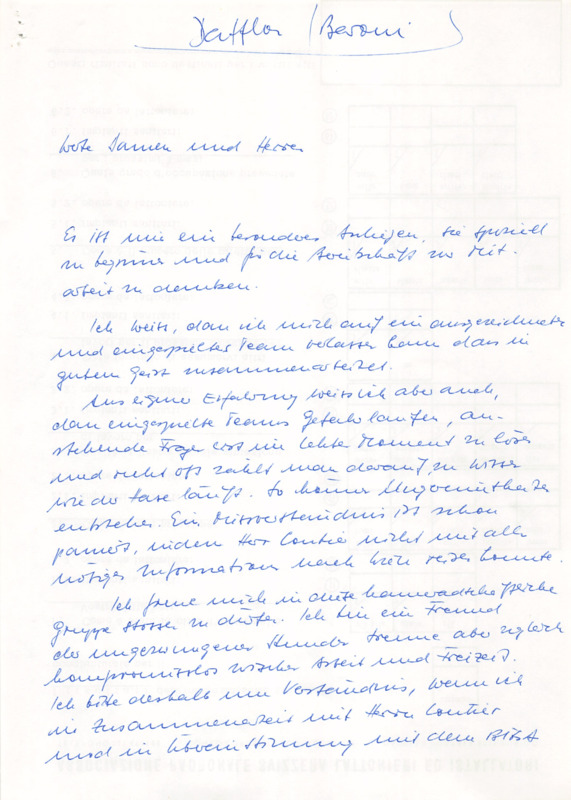 Dafflon (Beroni)
Werte Damen und Herren
Es ist mir ein besonderes Anliegen, sie speziell
zu begrüssen und für die Bereitschaft zur Mit-
arbeit zu danken.
Ich weiss, dass ich mich auf ein ausgezeichnetes
und eingespieltes Team verlassen kann dass in
gutem Geist zusammenarbeitet.
Aus eigener Erfahrung weiss ich aber auch,
dass eingespielte Teams Gefahr laufen, an-
stehende Fragen erst im letzten Moment zu lösen
und nicht oft zählt man darauf, zu wissen
wie der Hase läuft. So können Ungereimtheiten
entstehen. Ein Missverständnis ist schon
passiert, indem Herr nicht mit allen
nötigen Informationen nach reisen konnte.
Ich freue mich in diese kameradschaftliche
Gruppe stossen zu dürfen. Ich bin ein Freund
der ungezwungenen Stunden trenne aber zugleich
kompromisslos zwischen Arbeit und Freizeit.
Ich bitte deshalb um Verständnis, wenn ich
in Zusammenarbeit mit Herrn
und in Übereinstimmung mit dem